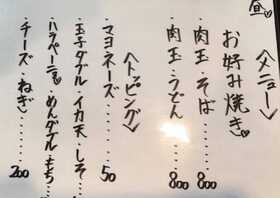 昼
〈メニュー〉
お好み焼き
・肉玉・そば……800
・肉玉・うどん……800
〈トッピング〉
・マヨネーズ……50
・玉子ダブル・イカ天・しそ…
・ハラペーニョ・めんダブル・もち…
・チーズ・ねぎ……200